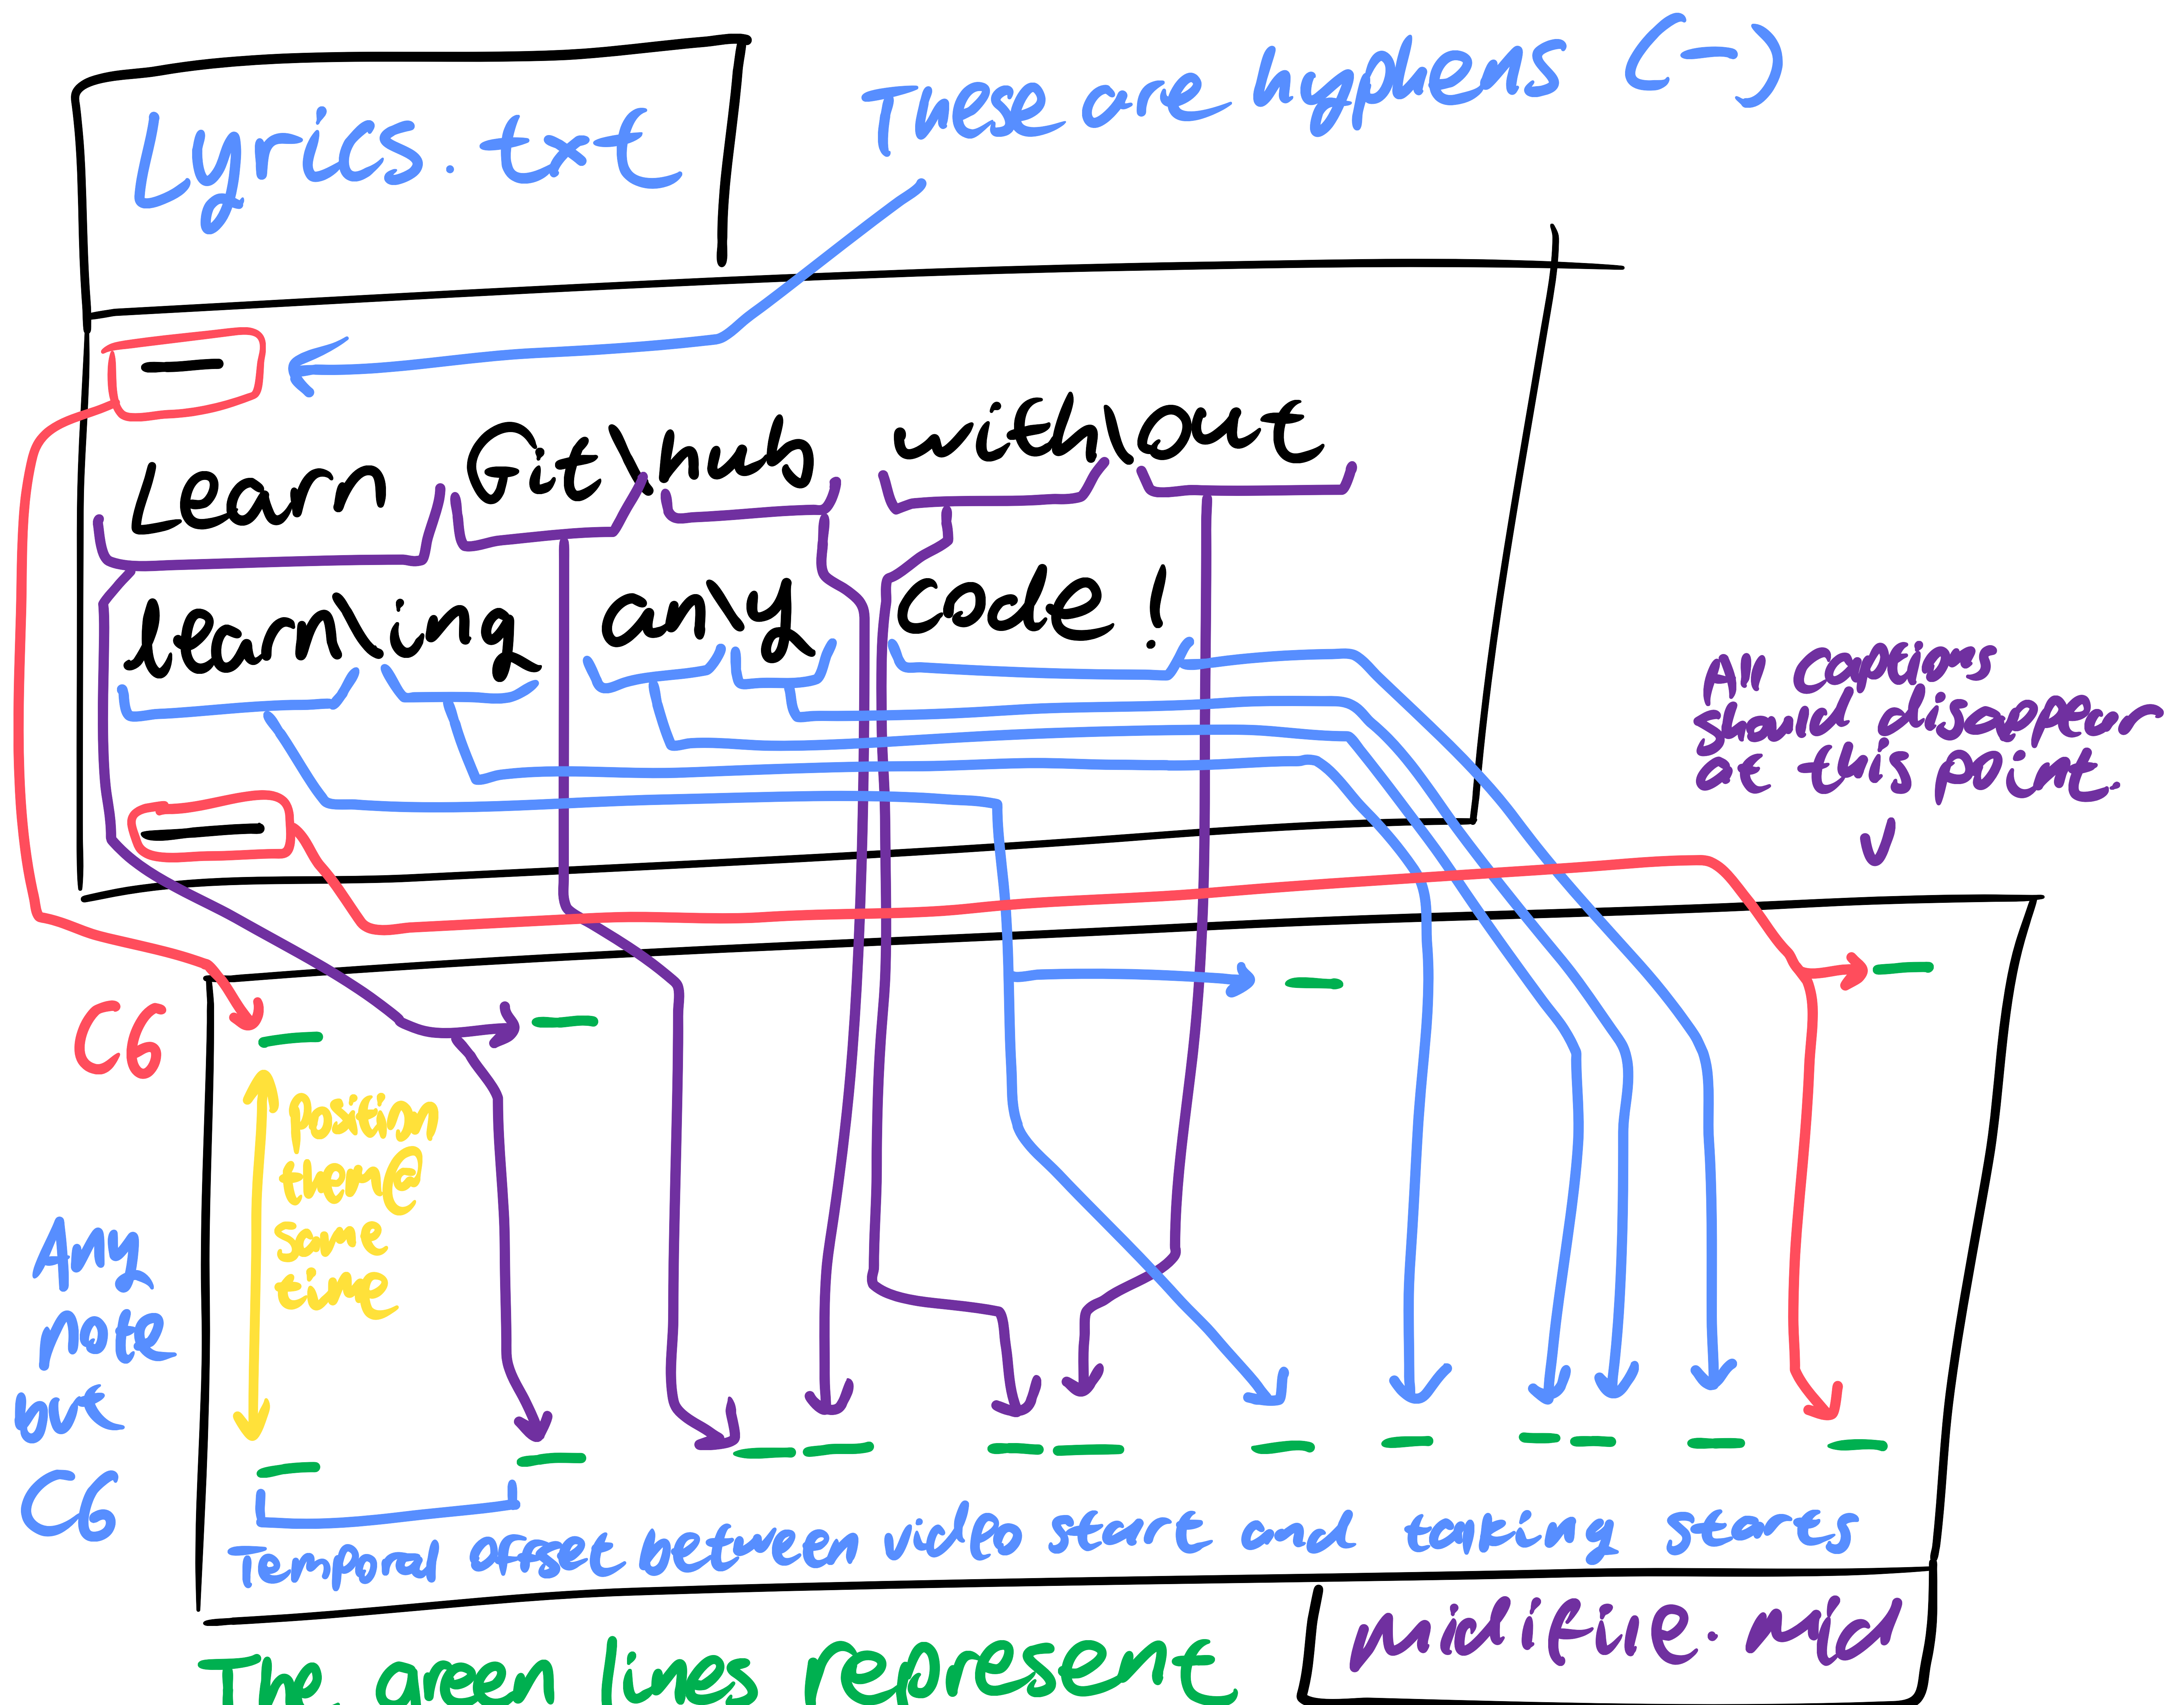 Lyrics.txt
These are hyphens (-)
-
Learn Git\hub with\out
learn\ing an\y code!
-
All captions
should disappear
at this point.
C6
position
them@
same
time
Any
note
but
C6
Temporal offset between video start and talking starts
midifile.mid
The green lines represent